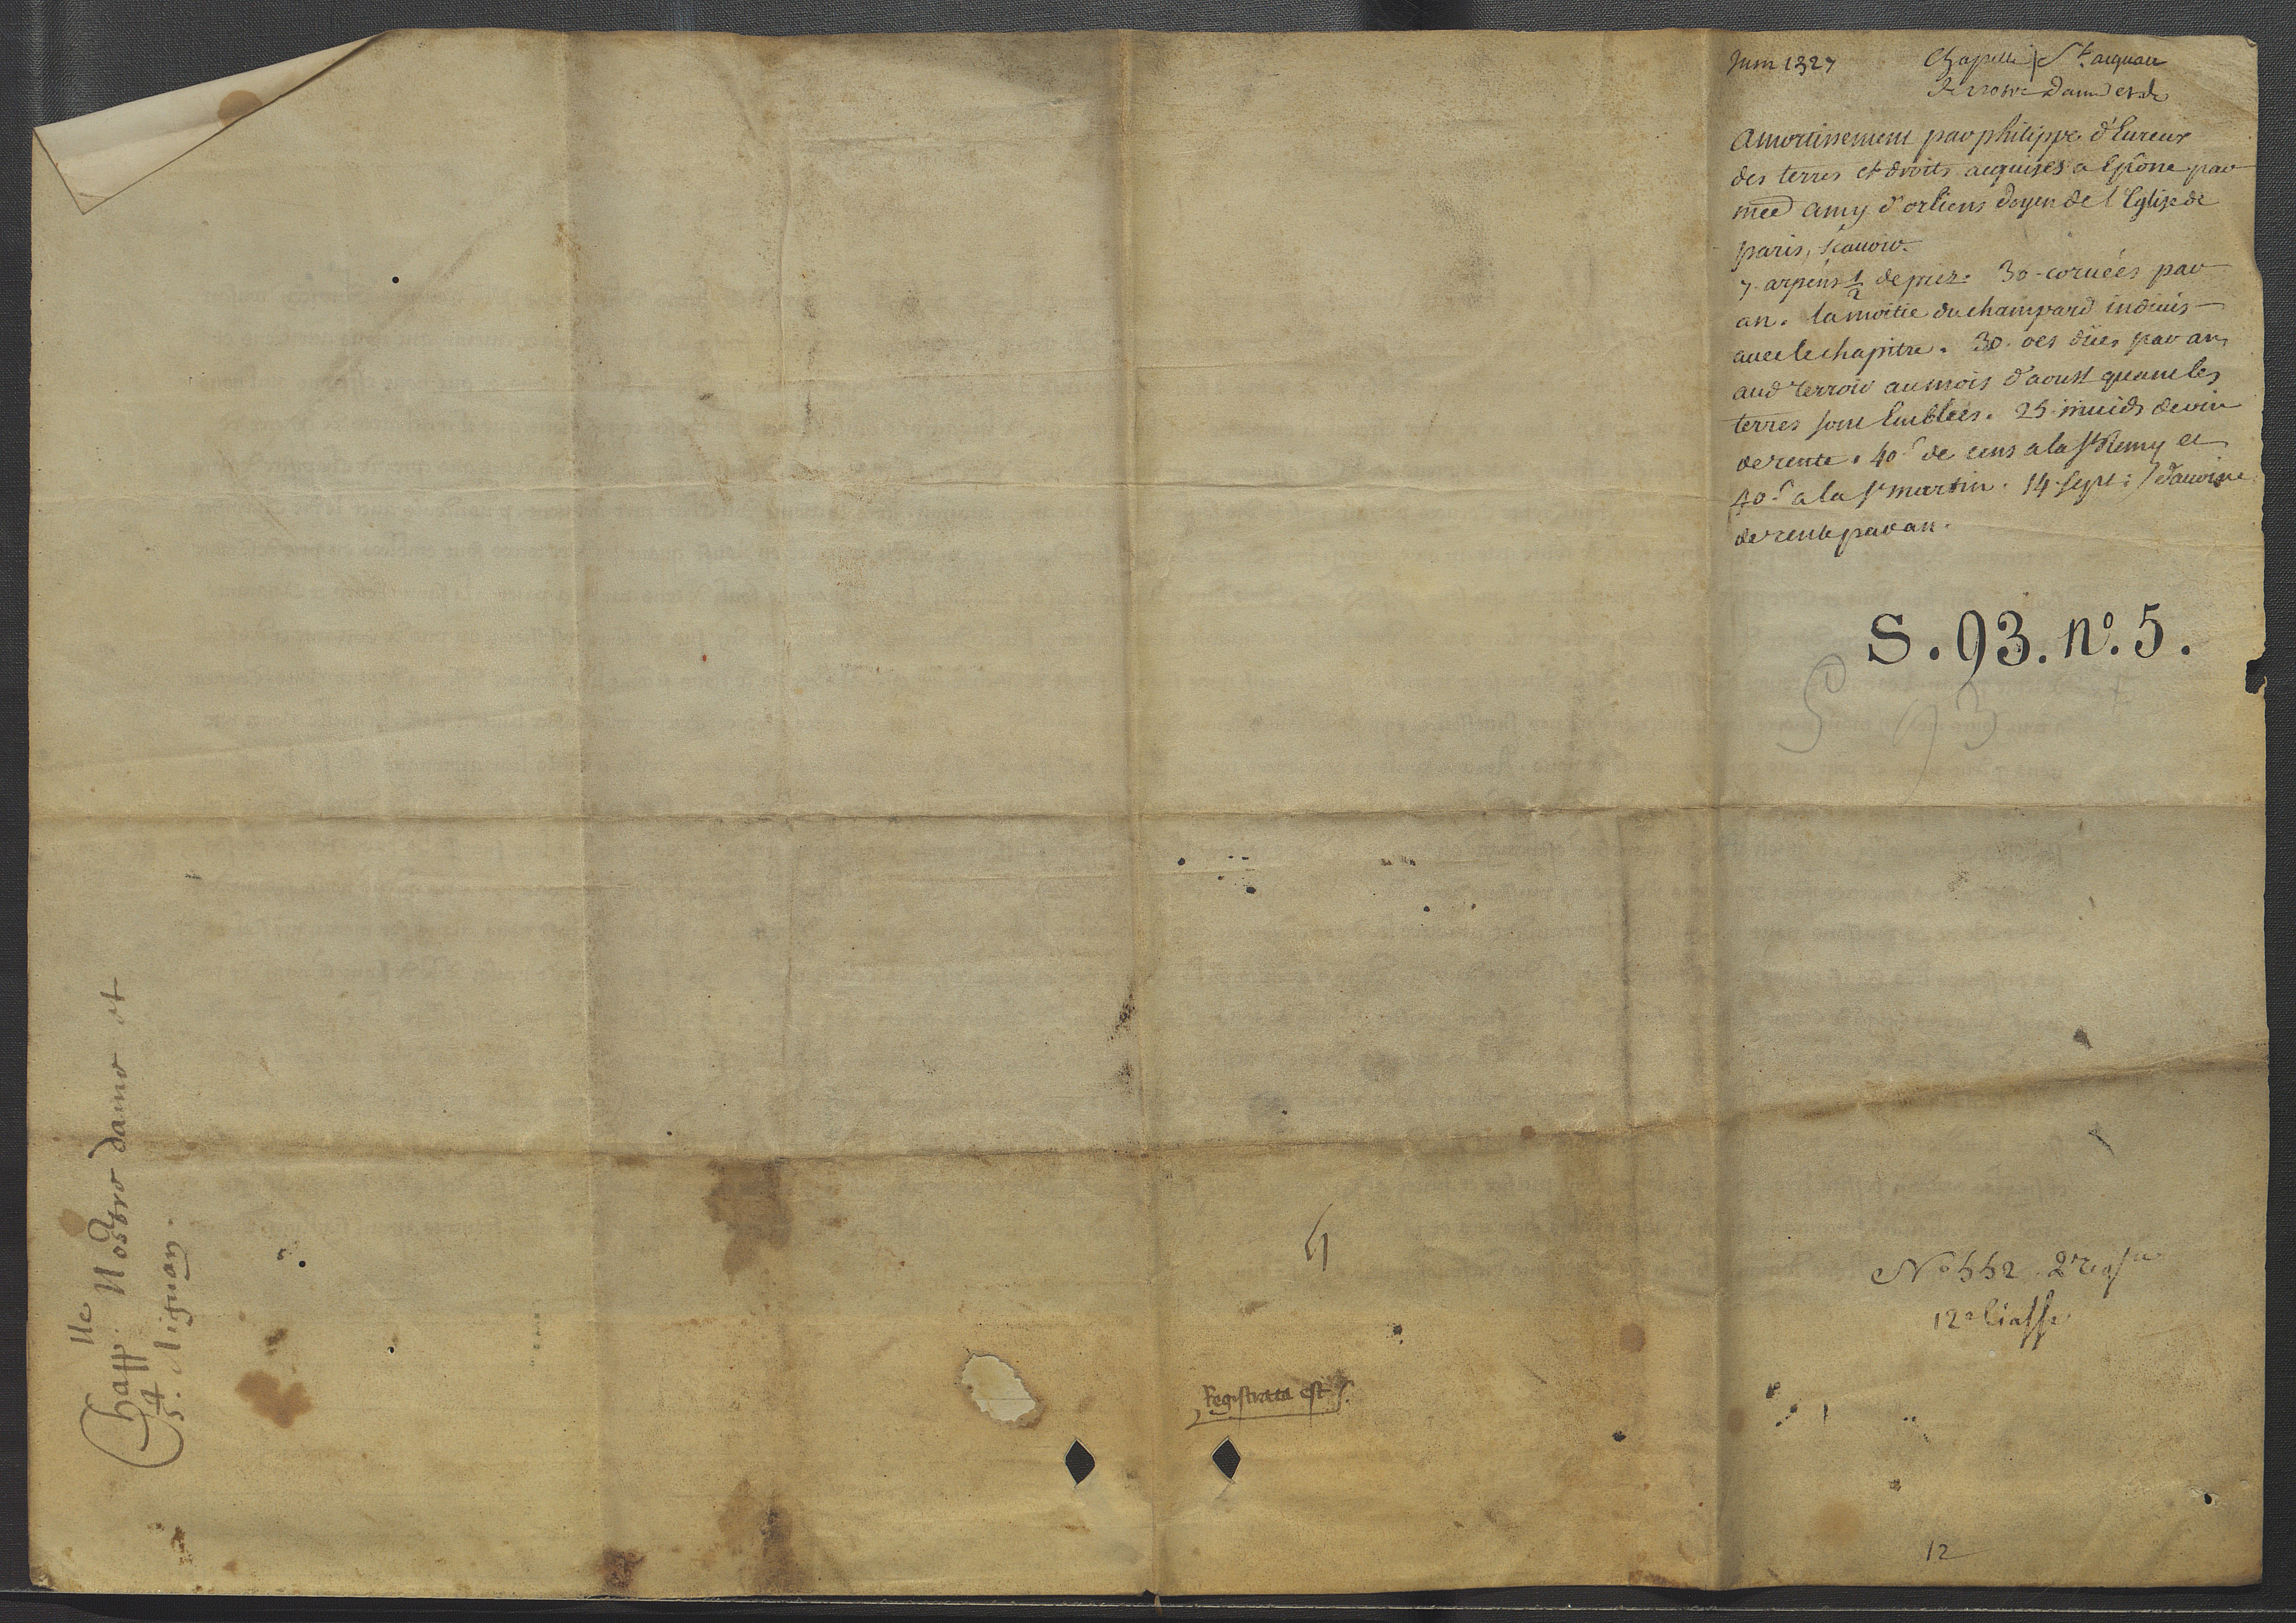 Juin 1327 Chapelle St. aignan
de nostre Dame et de
Amortissement par philippe d'Eureux
des terres et droits acquises a Epône par
med amy d'orliens doyen de l'Eglise de
paris, sçauoir.
7. arpens 1/2 de prez. 30 coruées par
an. la moitié du champard indiuis
auec le chapitre. 30. oes düés par an
aud terroir au mois d'aoust quant les
terres sont Emblées. 25 muids de vin
de rente. 40 s de cens a la St Remy et
40 s a la St martin. 14 sept: d'auoine
de rente par an.
S. 93. nº. 5.
S 93
Chapplle Nostre dame et
St. Aignan.
4
Registrata est
Nº 552
12e liasse
12